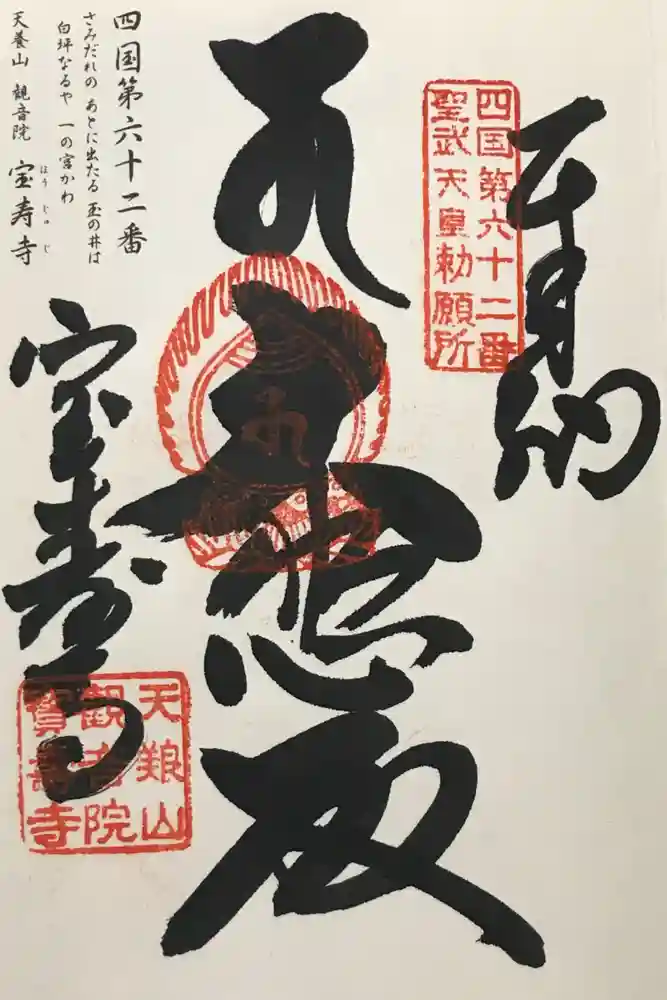 奉納
四国第六十二番
聖武天皇勅願所
大悲殿
四国第六十二番
さみだれの あとに出たる 玉の井は
白坪なるや 一の宮かわ
天養山 観音院 宝寿寺
ほう じゅ じ
宝寿寺
天養山
観音院
寳壽寺